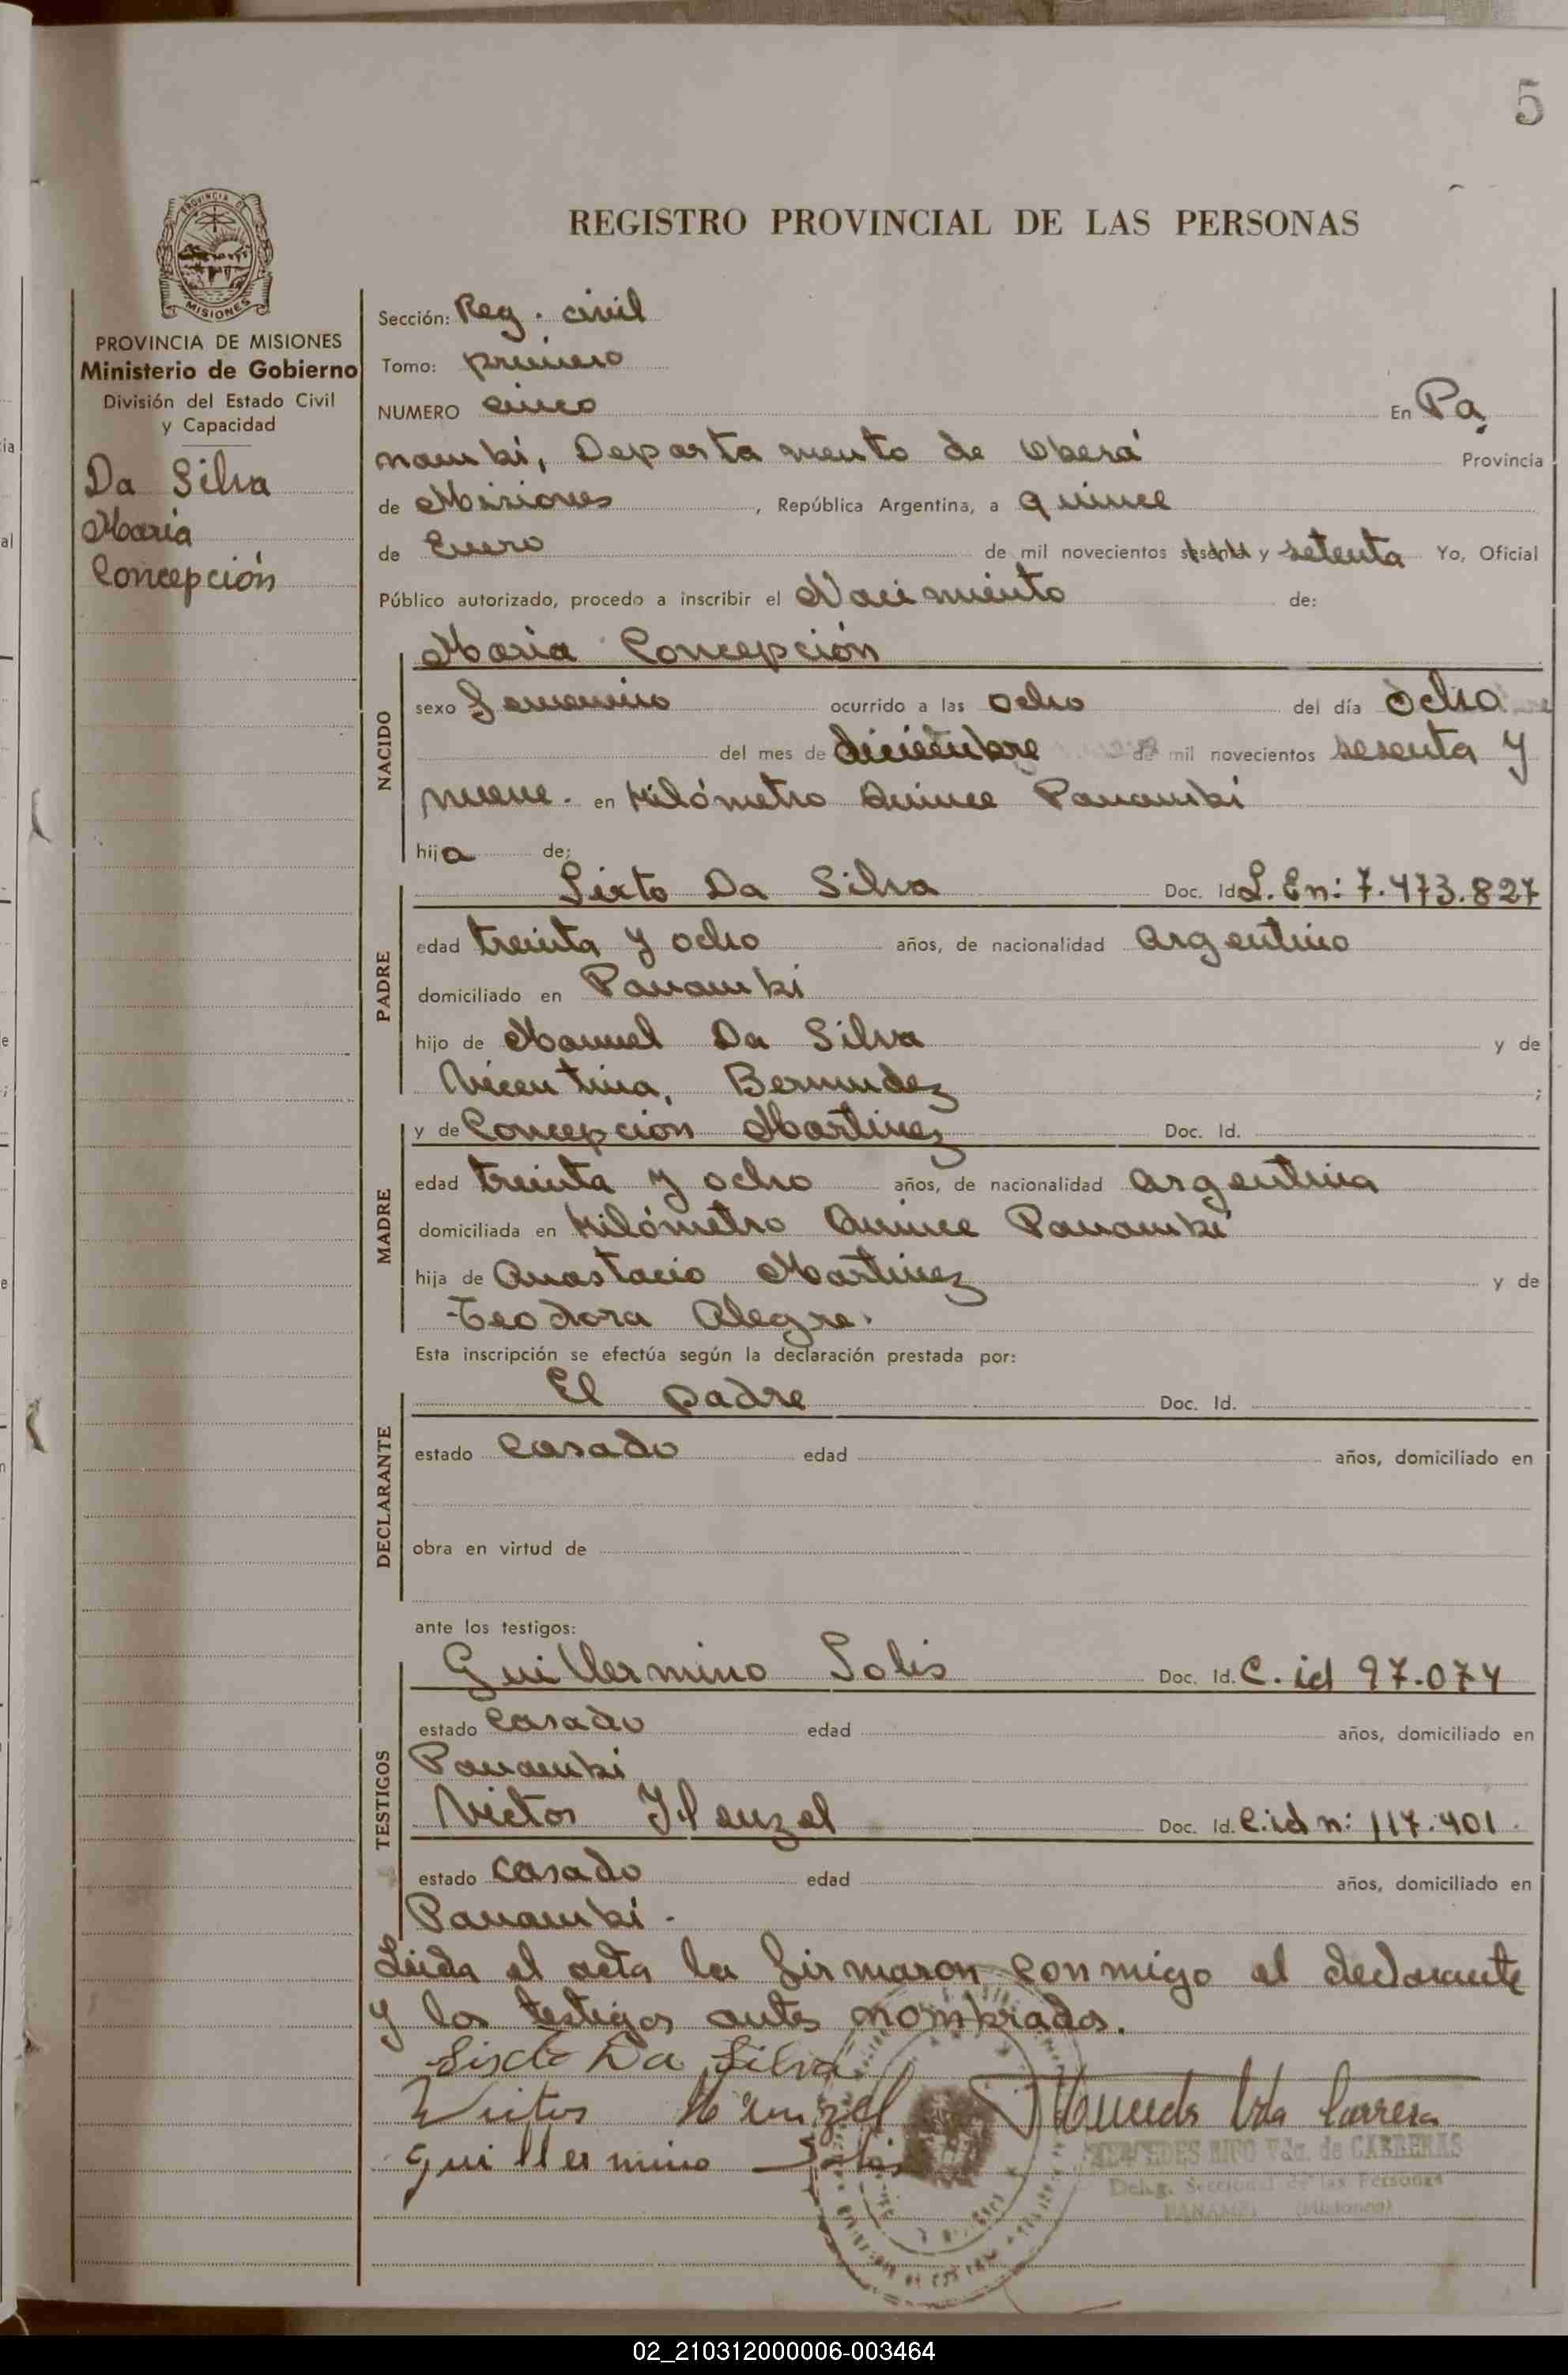 5
PROVINCIA DE
MISIONES
REGISTRO PROVINCIAL DE LAS PERSONAS
PROVINCIA DE MISIONES
Ministerio de Gobierno
División del Estado Civil
y Capacidad
Da Silva
Maria
Concepción
Sección: Reg. civil
Tomo: primero
NUMERO cinco En Pa
nambí, Departamento de Oberá Provincia
de Misiones, República Argentina, a quince
de Enero de mil novecientos sesenta y setenta Yo, Oficial
Público autorizado, procedo a inscribir el Nacimiento de:
Maria Concepción
NACIDO
sexo Femenino ocurrido a las ocho del día ocho
del mes de diciembre de mil novecientos sesenta y
nueve. en Kilómetro Quince Panambí
hija de:
PADRE
Sixto Da Silva Doc. Id L. En: 7.473.827
edad treinta y ocho años, de nacionalidad argentino
domiciliado en Panambí
hijo de Manuel Da Silva y de
Vicentina, Bermudez ;
MADRE
y de Concepción Martinez Doc. Id.
edad treinta y ocho años, de nacionalidad argentina
domiciliada en Kilómetro Quince Panambí
hija de Anastacio Martinez y de
Teodora Alegre.
Esta inscripción se efectúa según la declaración prestada por:
DECLARANTE
El padre Doc. Id.
estado Casado edad años, domiciliado en
obra en virtud de
ante los testigos:
TESTIGOS
Guillermino Solis Doc. Id. C. id 97.074
estado Casado edad años, domiciliado en
Panambí
Victor Henzel Doc. Id. C.id n: 117.401.
estado Casado edad años, domiciliado en
Panambí.
Leida el acta la firmaron conmigo el declarante
y los testigos antes nombrados.
Sixto Da Silva
Victor Henzel
Guillermino Solis
MERCEDES RICO Vda. de CARRERAS
Deleg. Seccional de las Personas
PANAMBI (Misiones)
02_210312000006-003464